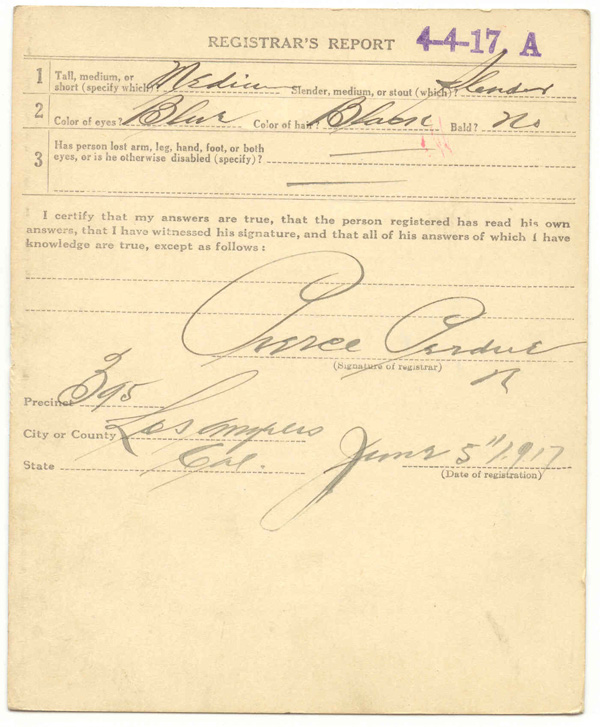 REGISTRAR'S REPORT 4-4-17 A
1 Tall, medium, or short (specify which)? Medium Slender, medium, or stout (which)? Slender
2 Color of eyes? Blue Color of hair? Black Bald? no
3 Has person lost arm, leg, hand, foot, or both
eyes, or is he otherwise disabled (specify)?
I certify that my answers are true, that the person registered has read his own
answers, that I have witnessed his signature, and that all of his answers of which I have
knowledge are true, except as follows:
Pierce Perdue
(Signature of registrar)
Precinct 395
City or County Los Angeles
State Cal. June 5" 1917
(Date of registration)